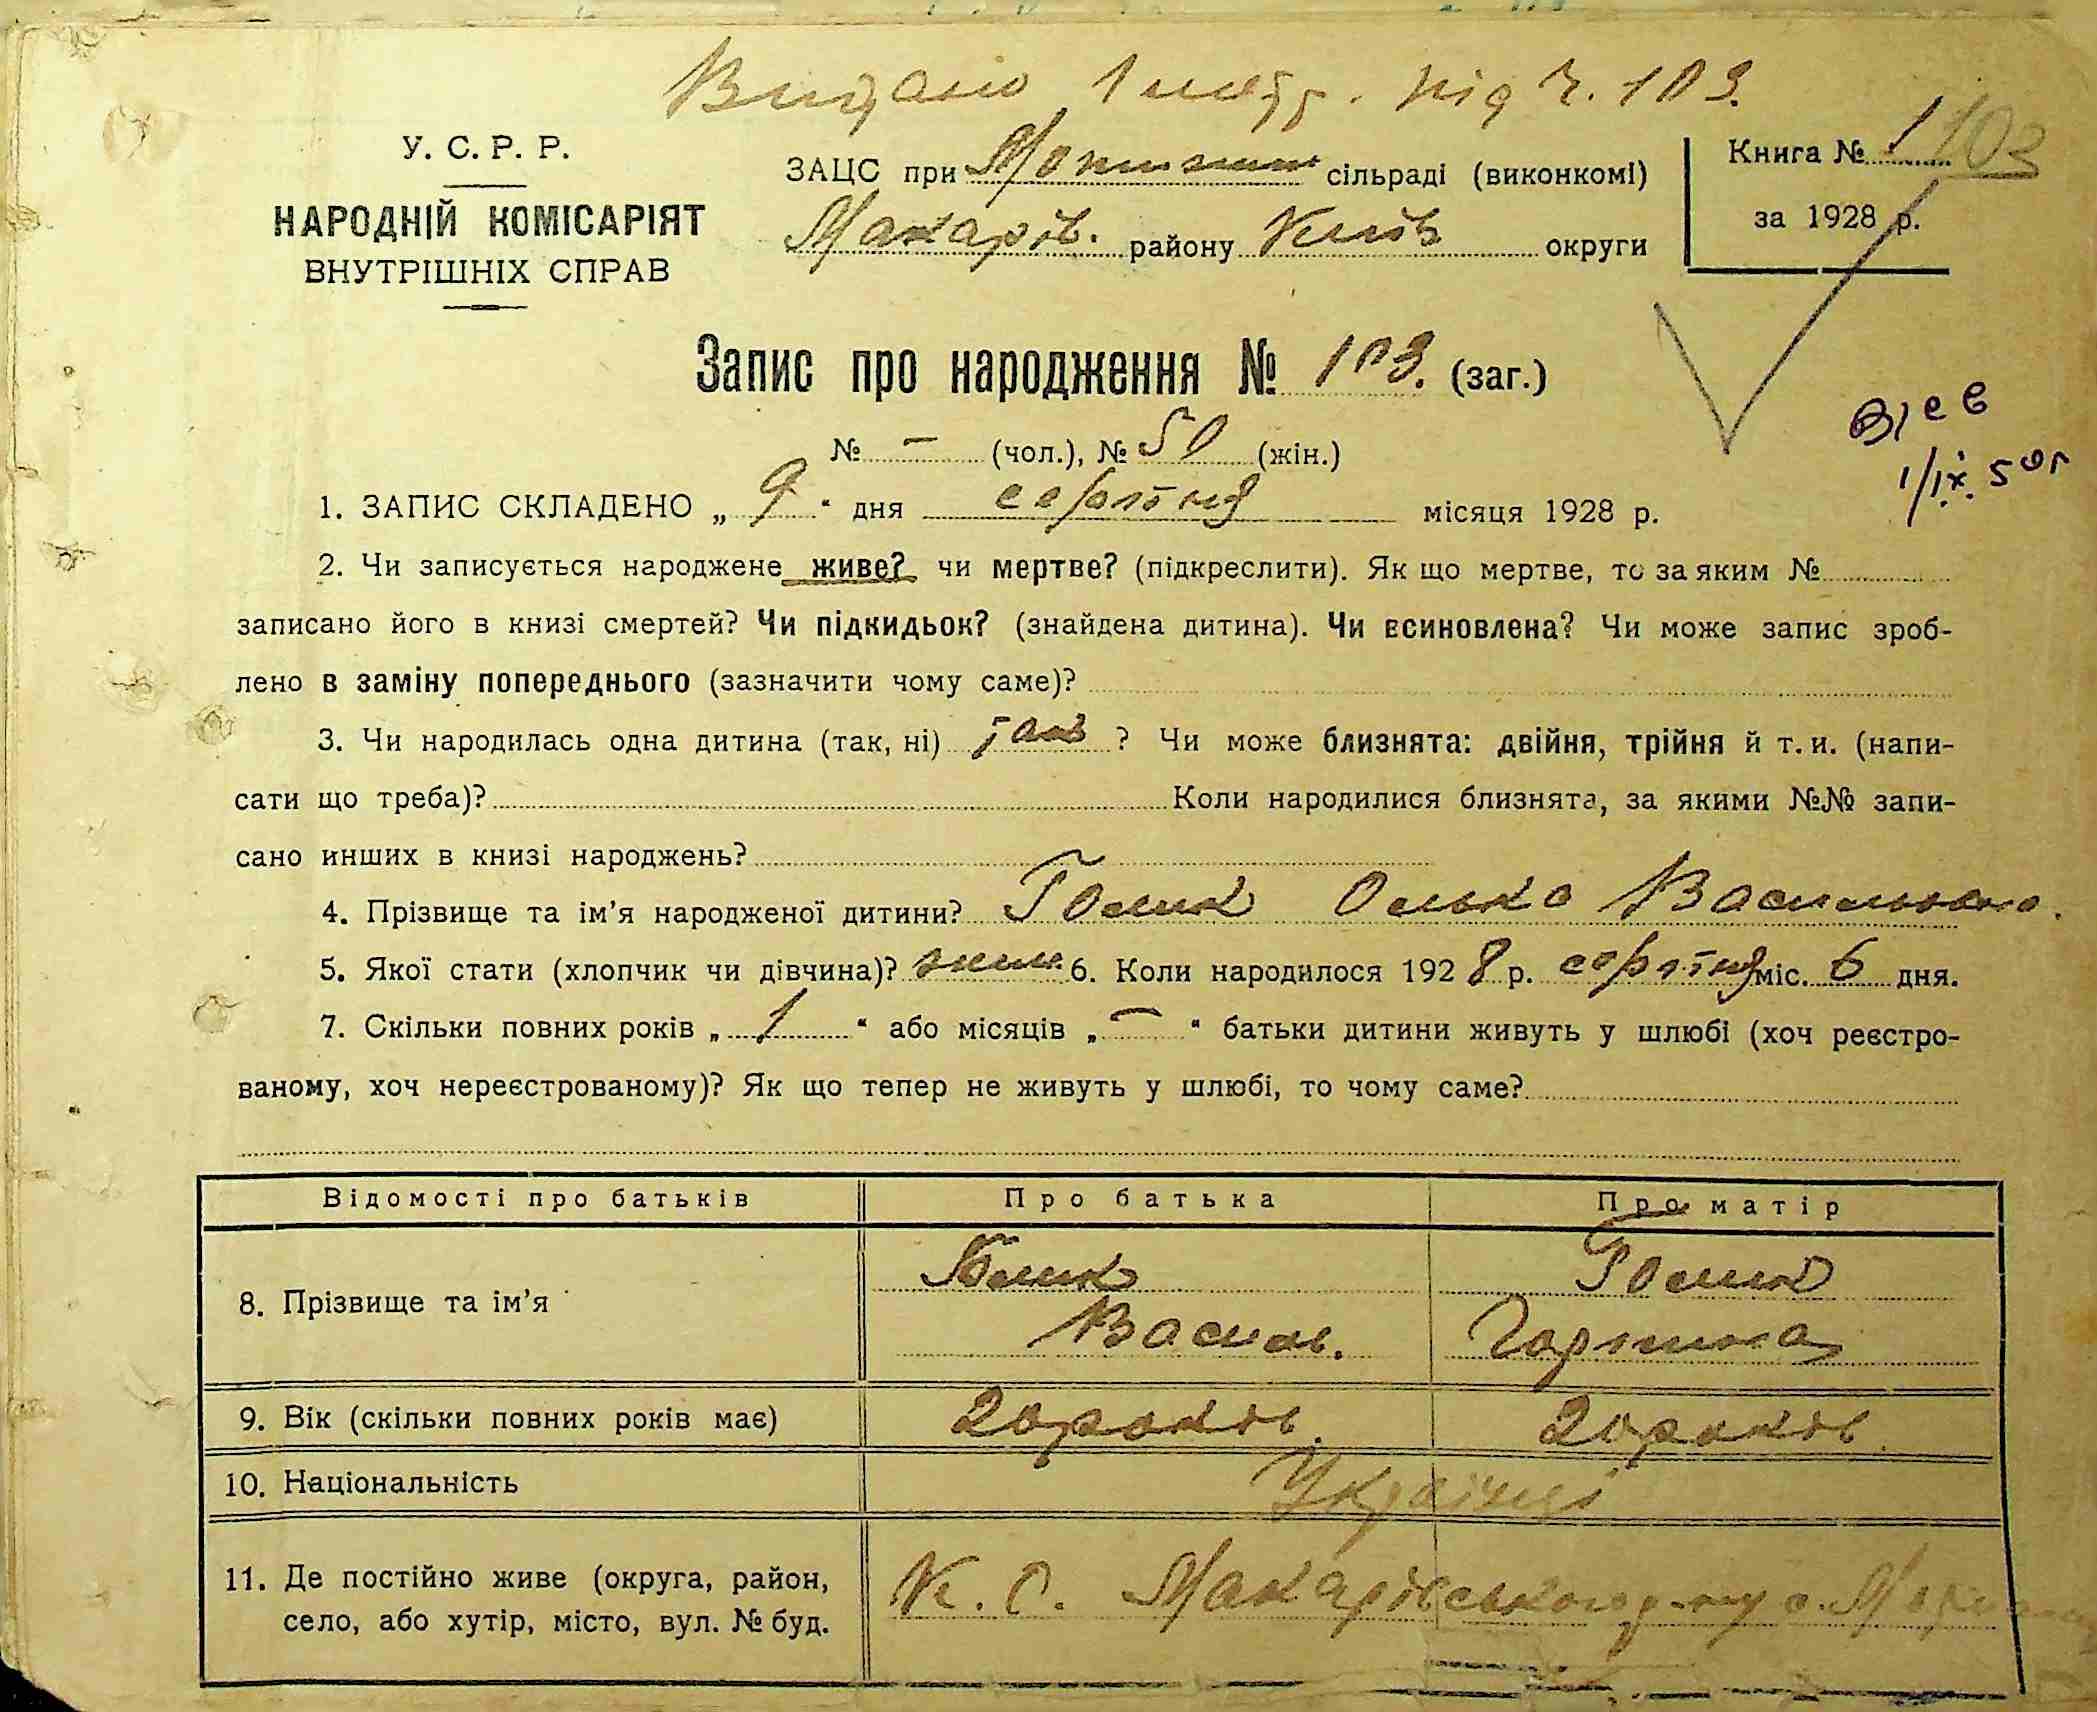 Видано 1 метр. під Ч. 103.
У. С. Р. Р.
НАРОДНІЙ КОМІСАРІЯТ
ВНУТРІШНІХ СПРАВ
ЗАЦС при Мотижин сільраді (виконкомі)
Макарів. району Київ округи
Книга № 1 103
за 1928 р.
Запис про народження № 103. (заг.)
№ — (чол.), № 50 (жін.)
1/IX. 50г
1. ЗАПИС СКЛАДЕНО „ 9 “ дня серпня місяця 1928 р.
2. Чи записується народжене живе? чи мертве? (підкреслити). Як що мертве, то за яким №
записано його в книзі смертей? Чи підкидьок? (знайдена дитина). Чи всиновлена? Чи може запис зроб-
лено в заміну попереднього (зазначити чому саме)?
3. Чи народилась одна дитина (так, ні) так ? Чи може близнята: двійня, трійня й т. и. (напи-
сати що треба)? Коли народилися близнята, за якими №№ запи-
сано инших в книзі народжень?
4. Прізвище та ім’я народженої дитини? Голик Олька Васильовна.
5. Якої стати (хлопчик чи дівчина)? жін. 6. Коли народилося 1928 р. серпня міс. 6 дня.
7. Скільки повних років „ 1 “ або місяців „ — “ батьки дитини живуть у шлюбі (хоч реєстро-
ваному, хоч нереєстрованому)? Як що тепер не живуть у шлюбі, то чому саме?
Відомості про батьків Про батька Про матір
8. Прізвище та ім’я Голик Василь. Голик Горпина
9. Вік (скільки повних років має) 20 років. 20 років.
10. Національність Українці
11. Де постійно живе (округа, район, К. О. Макарівського р-ну с.
село, або хутір, місто, вул. № буд.